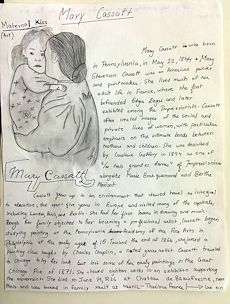 Mary Cassatt
Maternal Kiss
(Art)
Mary Cassatt was born
in Pennsylvania, in May 22, 1844. Mary
Stevenson Cassatt was an American painter
and printmaker. She lived much of her
adult life in France, where she first
befriended Edgar Degas and later
exhibited among the Impressionists. Cassatt
often created images of the social and
private lives of women, with particular
emphasis on the intimate bonds between
mothers and children. She was described
by Gustave Geffroy in 1894 as one of
"les trois grandes dames" of Impressionism
alongside Marie Bracquemond and Berthe
Morisot.
Mary Cassatt
Cassatt grew up in an environment that viewed travel as integral
to education; she spent five years in Europe and visited many of the capitals,
including London, Paris, and Berlin. She had her first lessons in drawing and music
though her family objected to her becoming a professional artist, Cassatt began
studying painting at the Pennsylvania Academy of the Fine Arts in
Philadelphia at the early age of 15. Toward the end of 1866 she joined a
painting class taught by Charles Chaplin, a noted genre artist. Cassatt traveled
to Chicago to try her luck but lost some of her early paintings in the Great
Chicago Fire of 1871. She